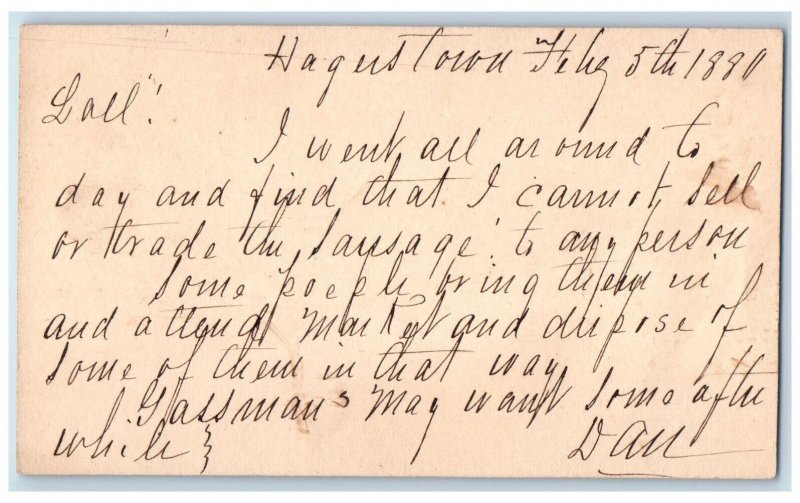 Hagerstown Feby 5th 1880
Lall!
I went all around to
day and find that I cannot sell
or trade the sausage to any person
Some people bring them in
and attend Market and dispose of
some of them in that way
Gassmans May want some after
while
Dan